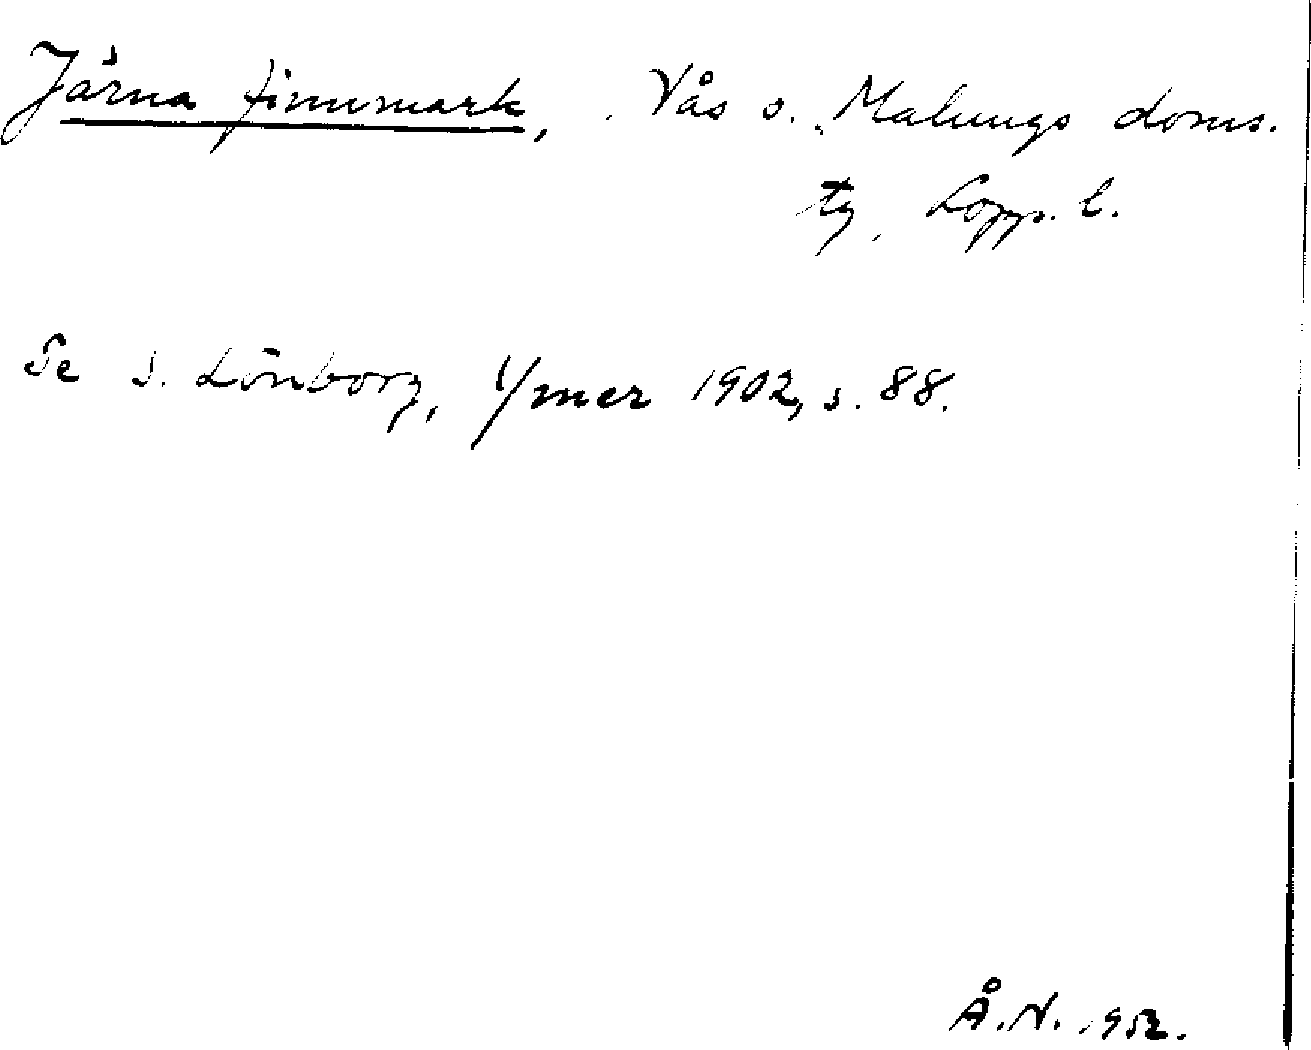 Järna finnmark, Nås o. Malungs doms.
Kopp. l.
Se S. Lönborg, Ymer 1902, s. 88.
Å.N. 1952.